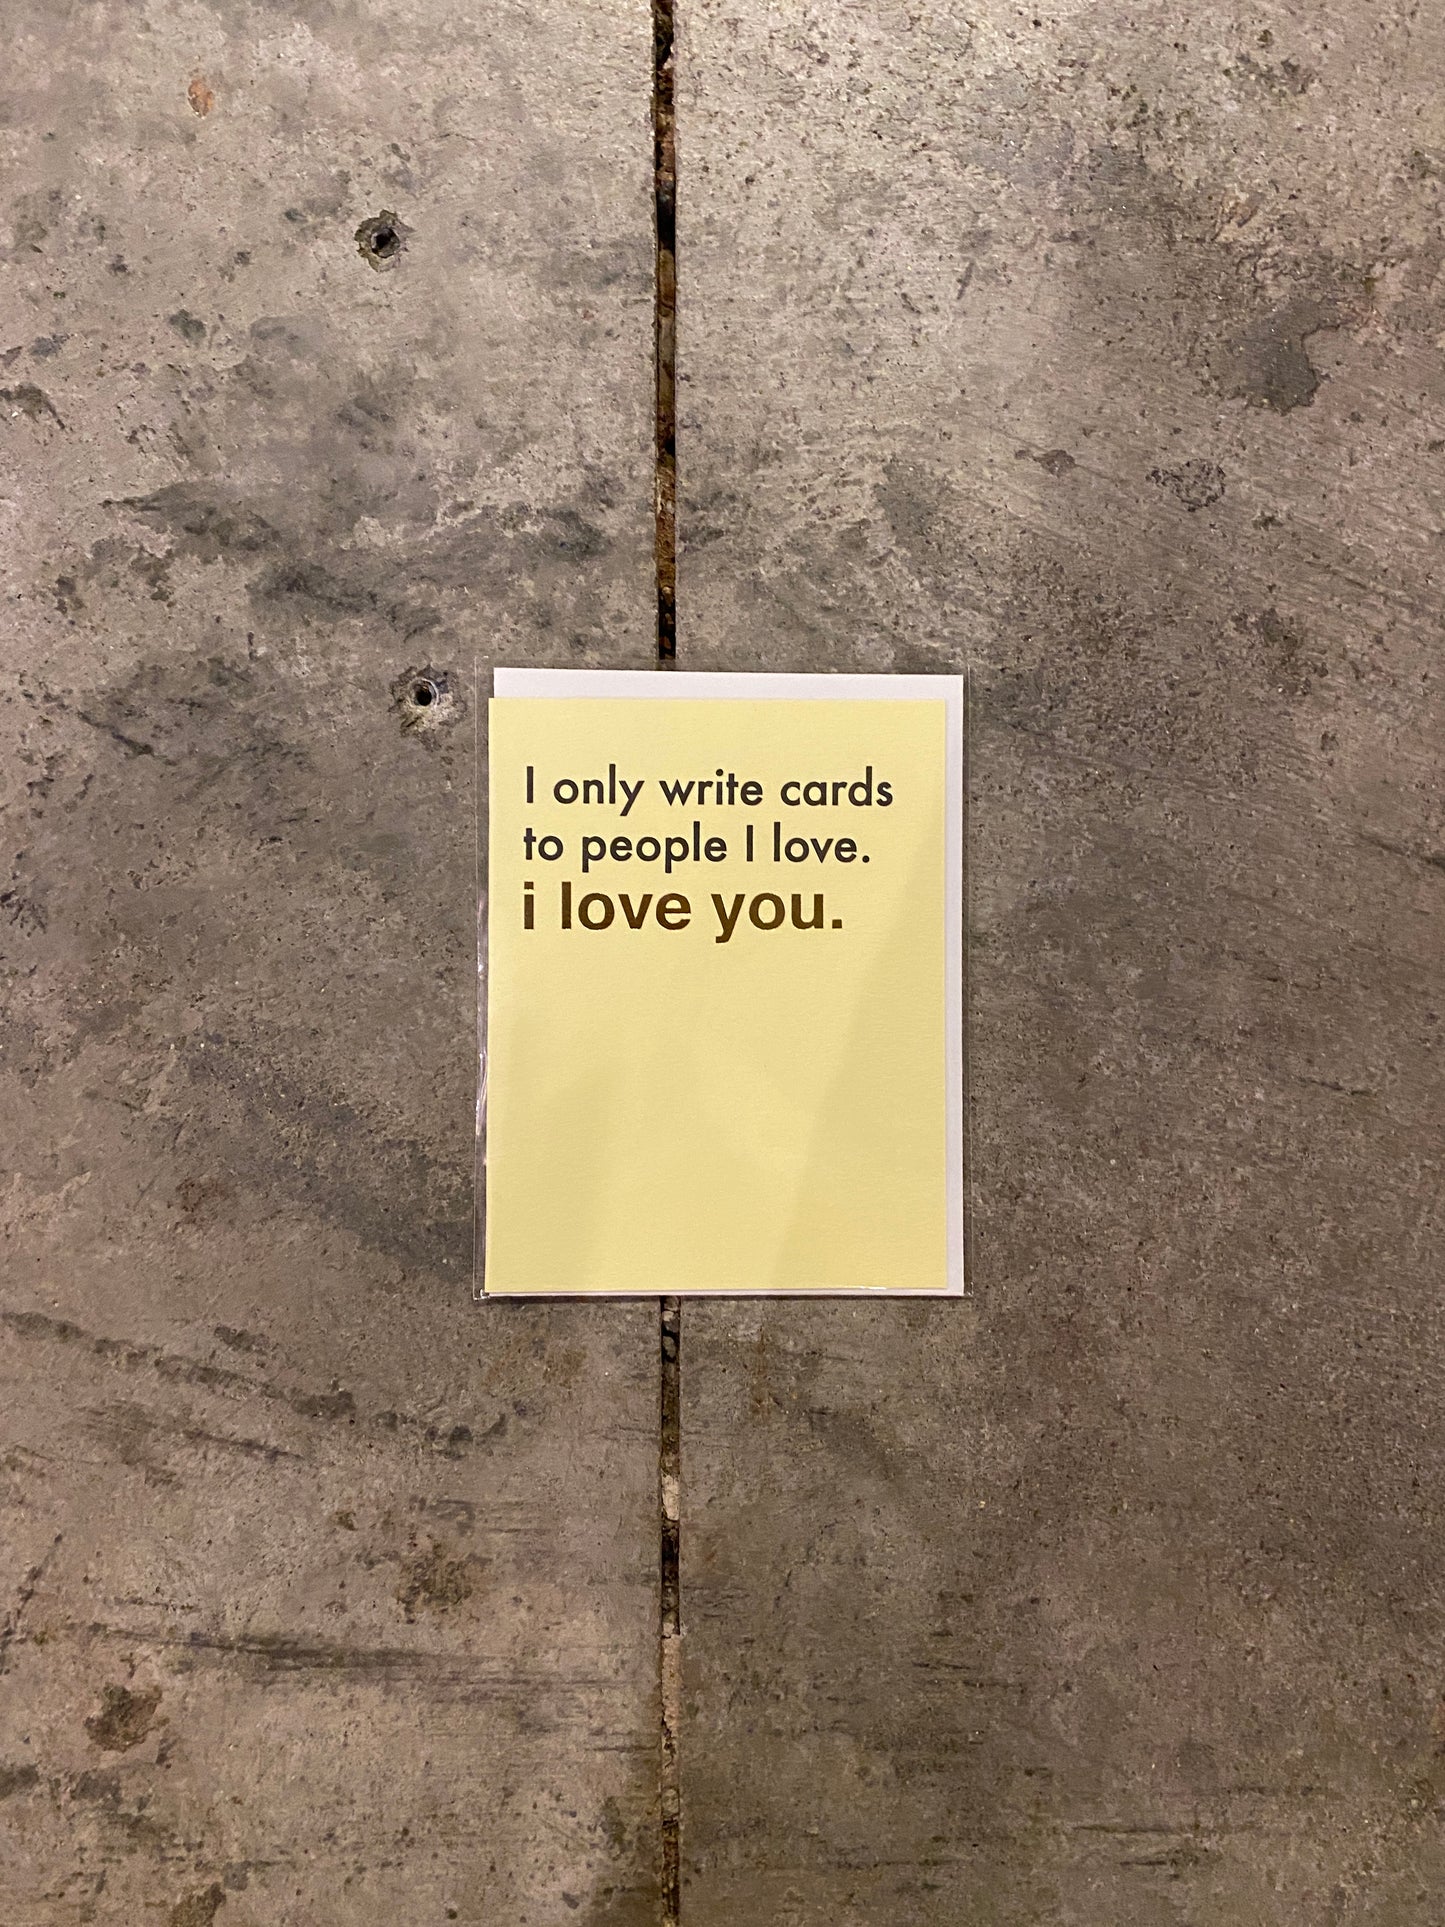 I only write cards
to people I love.
i love you.